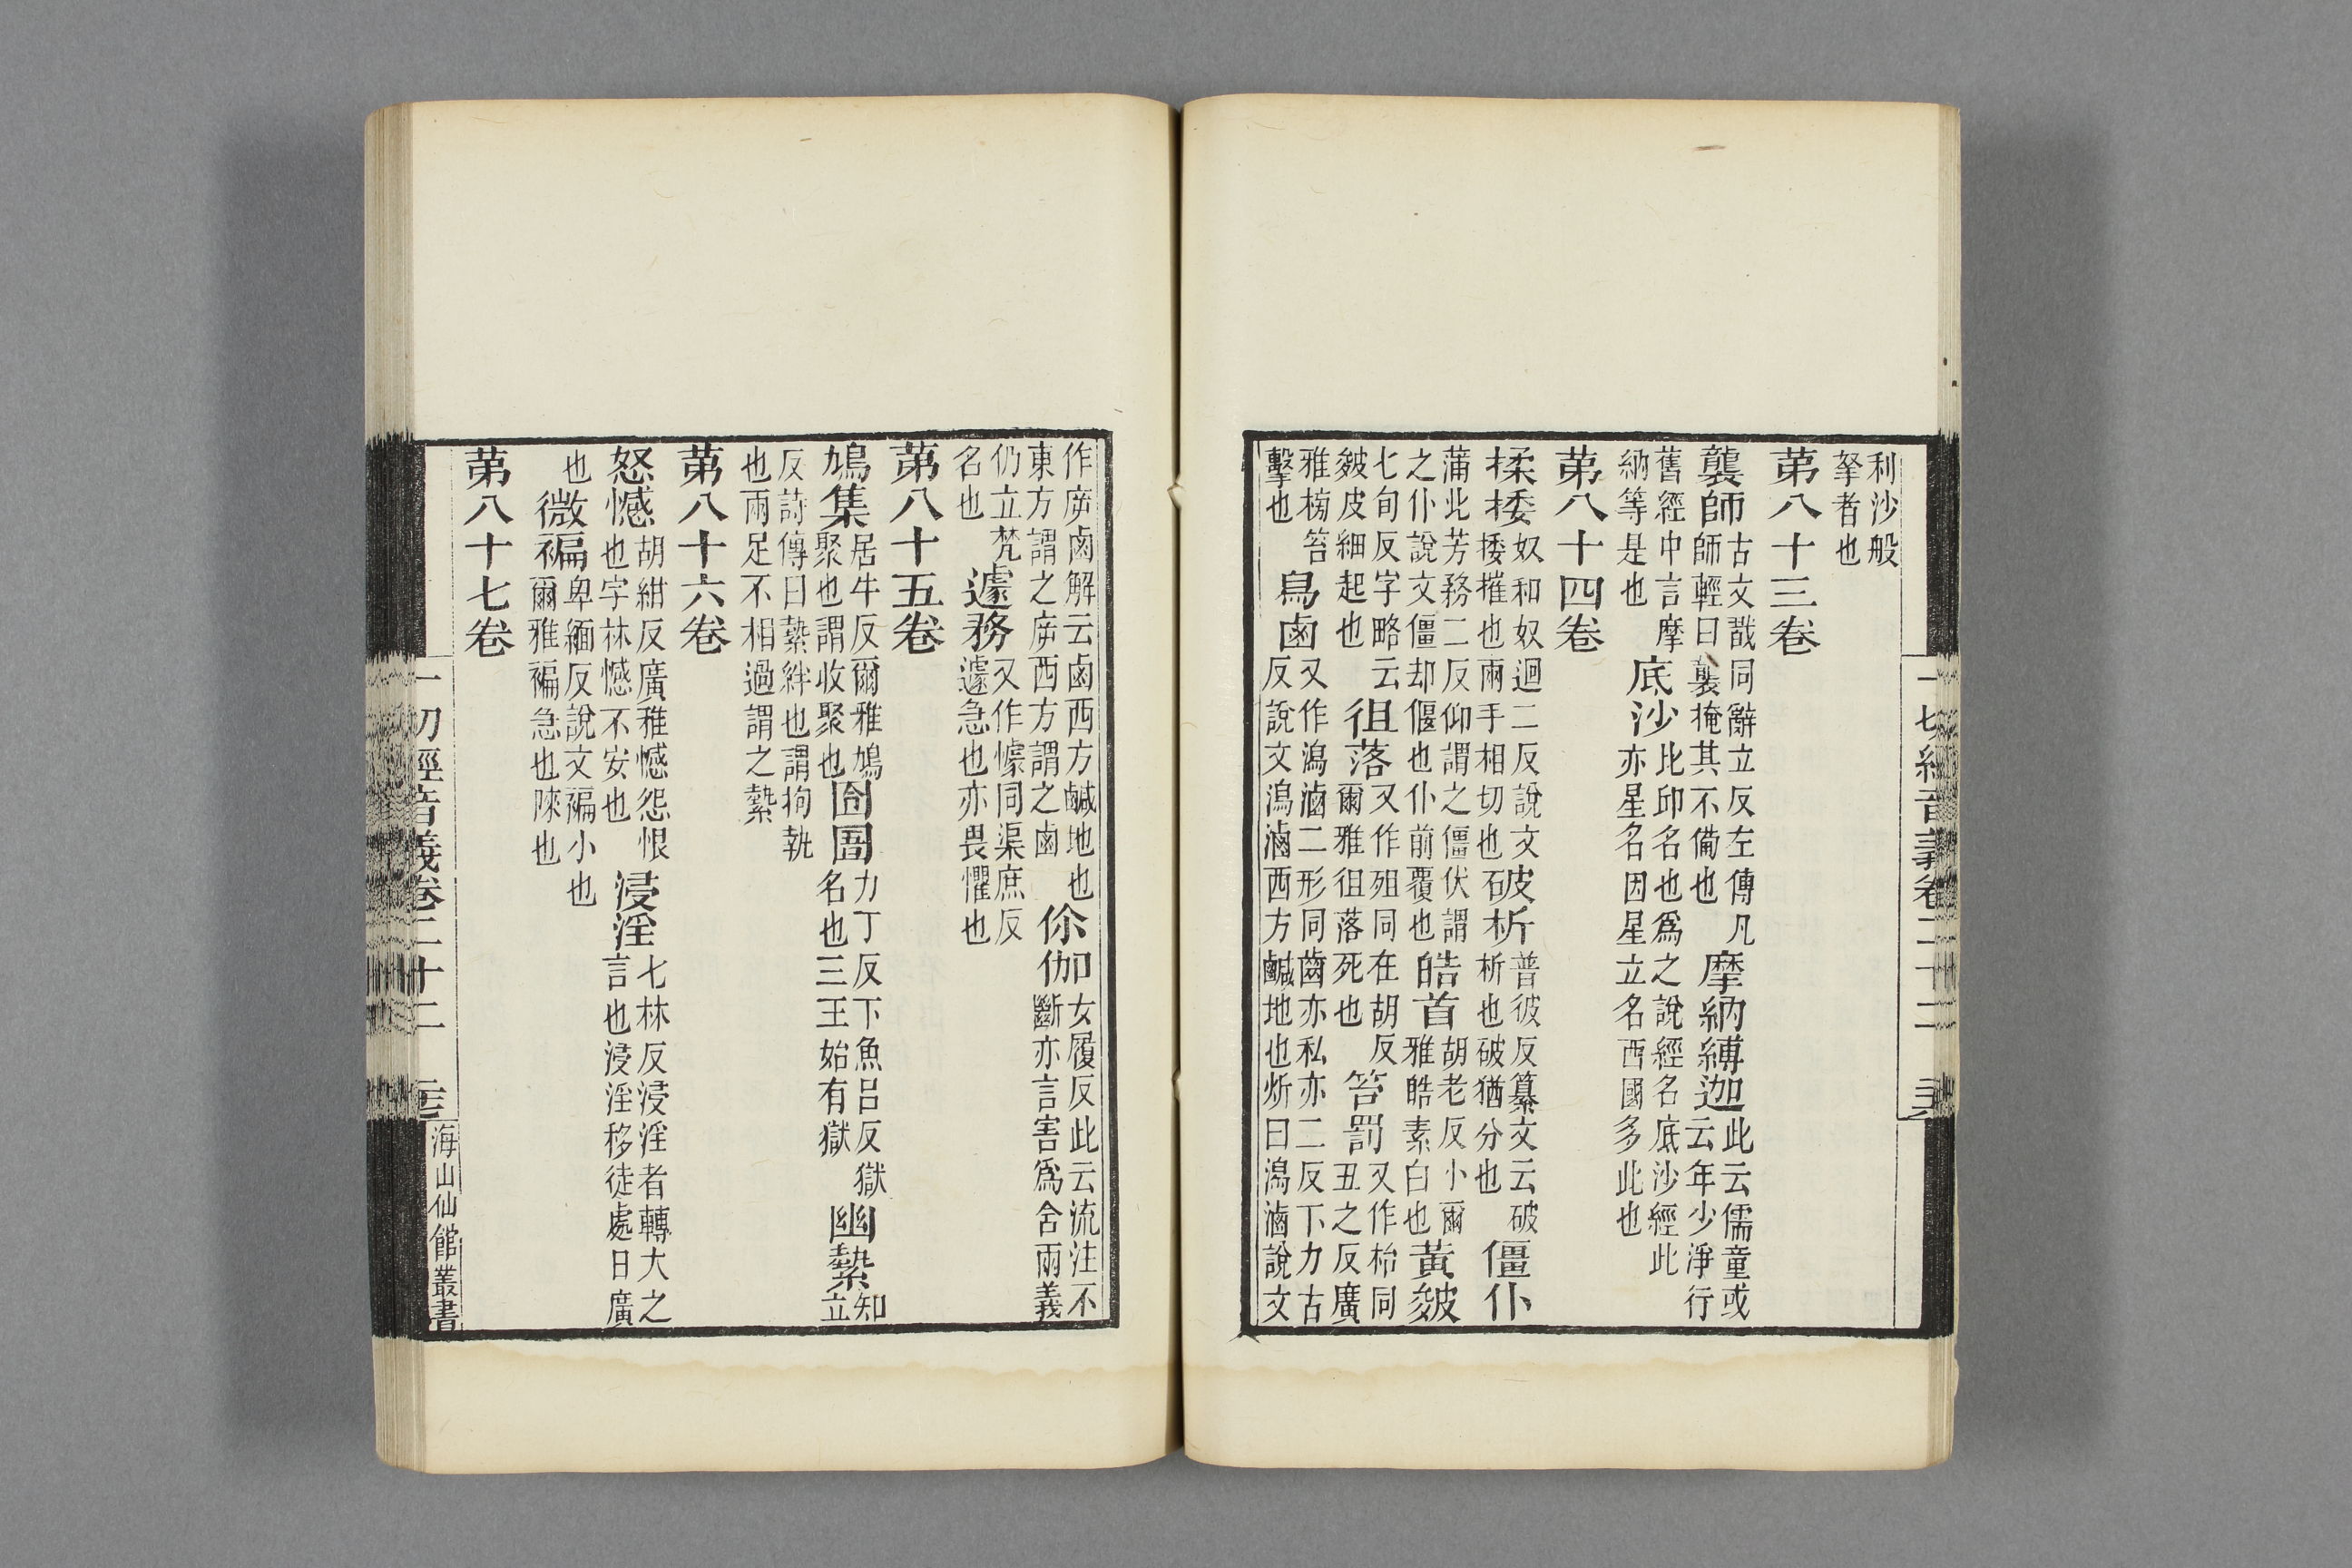 一切經音義卷二十二
利沙般拏者也
第八十三卷
襲師古文戠同辭立反左傳凡師輕曰襲掩其不備也摩納縛迦此云儒童或云年少淨行
舊經中言摩納等是也底沙比邱名也爲之說經名底沙經此亦星名因星立名西國多此也
第八十四卷
揉捼奴和奴迴二反說文捼摧也兩手相切也破析普彼反纂文云破析也破猶分也僵仆
蒲此芳務二反仰謂之僵伏謂之仆說文僵却偃也仆前覆也皓首胡老反小爾雅皓素白也黃皴
七旬反字略云皴皮細起也徂落又作殂同在胡反爾雅徂落死也笞罰又作枱同丑之反廣
雅榜笞擊也舄鹵又作潟滷二形同齒亦私亦二反下力古反說文潟滷西方鹹地也炘曰潟滷說文
作庌鹵解云鹵西方鹹地也東方謂之庌西方謂之鹵伱伽女履反此云流注不斷亦言害爲含兩義
仍立梵名也遽務又作懅同渠庶反遽急也亦畏懼也
第八十五卷
鳩集居牛反爾雅鳩聚也謂收聚也囹圄力丁反下魚呂反獄名也三王始有獄幽縶知立
反詩傳曰縶絆也謂拘執也兩足不相過謂之縶
第八十六卷
怒憾胡紺反廣雅憾怨恨也字林憾不安也浸淫七林反浸淫者轉大之言也浸淫移徒處日廣
也微褊卑緬反說文褊小也爾雅褊急也陿也
第八十七卷
一切經音義卷二十二
海山仙館叢書